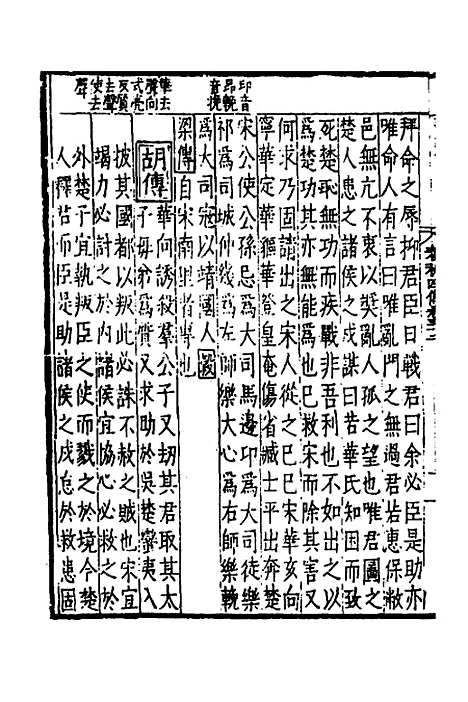 拜命之辱抑君臣日戰君曰余必臣是助亦
唯命人有言曰唯亂門之無過君若惠保敝
邑無亢不衷以奬亂人孤之望也唯君圖之
楚人患之諸侯之戍謀曰若華氏知困而致
死楚恥無功而疾戰非吾利也不如出之以
爲楚功其亦無能爲也已救宋而除其害又
何求乃固請出之宋人從之己巳宋華亥向
寧華定華貙華登皇奄傷省臧士平出奔楚
宋公使公孫忌爲大司馬邊卬爲大司徒樂
祁爲司城仲幾爲左師樂大心爲右師樂輓
爲大司寇以靖國人
梁傳自宋南里者專也
胡傳華向誘殺羣公子又劫其君取其太
子毋弟爲質又求助於吳楚蠻夷入
披其國都以叛此必誅不赦之賊也宋宜
竭力必討之於内諸侯宜協心必救之於
外楚子宜執叛臣之使而戮之於境今楚
人釋君而臣是助諸侯之戍怠於救患圖
卬音
昂輓
音挽
華去
聲向
式亮
反質
去聲
使去
聲